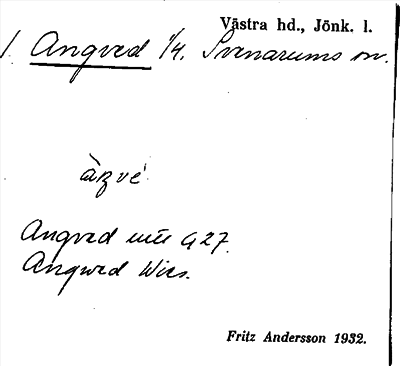 Västra hd., Jönk. l.
1. Angved 1/4. Svenarums sn.
àŋvé
Angved G27.
Angwed Wies.
Fritz Andersson 1932.